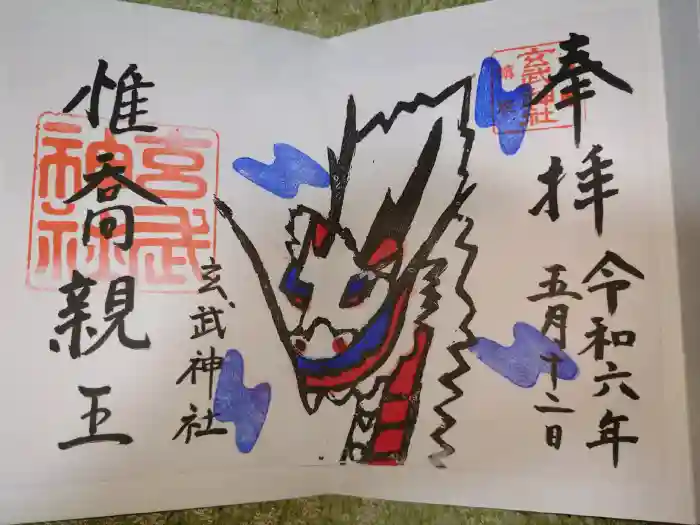 奉拝
令和六年
五月十二日
玄武神社
玄武神社
惟喬親王
玄武神社